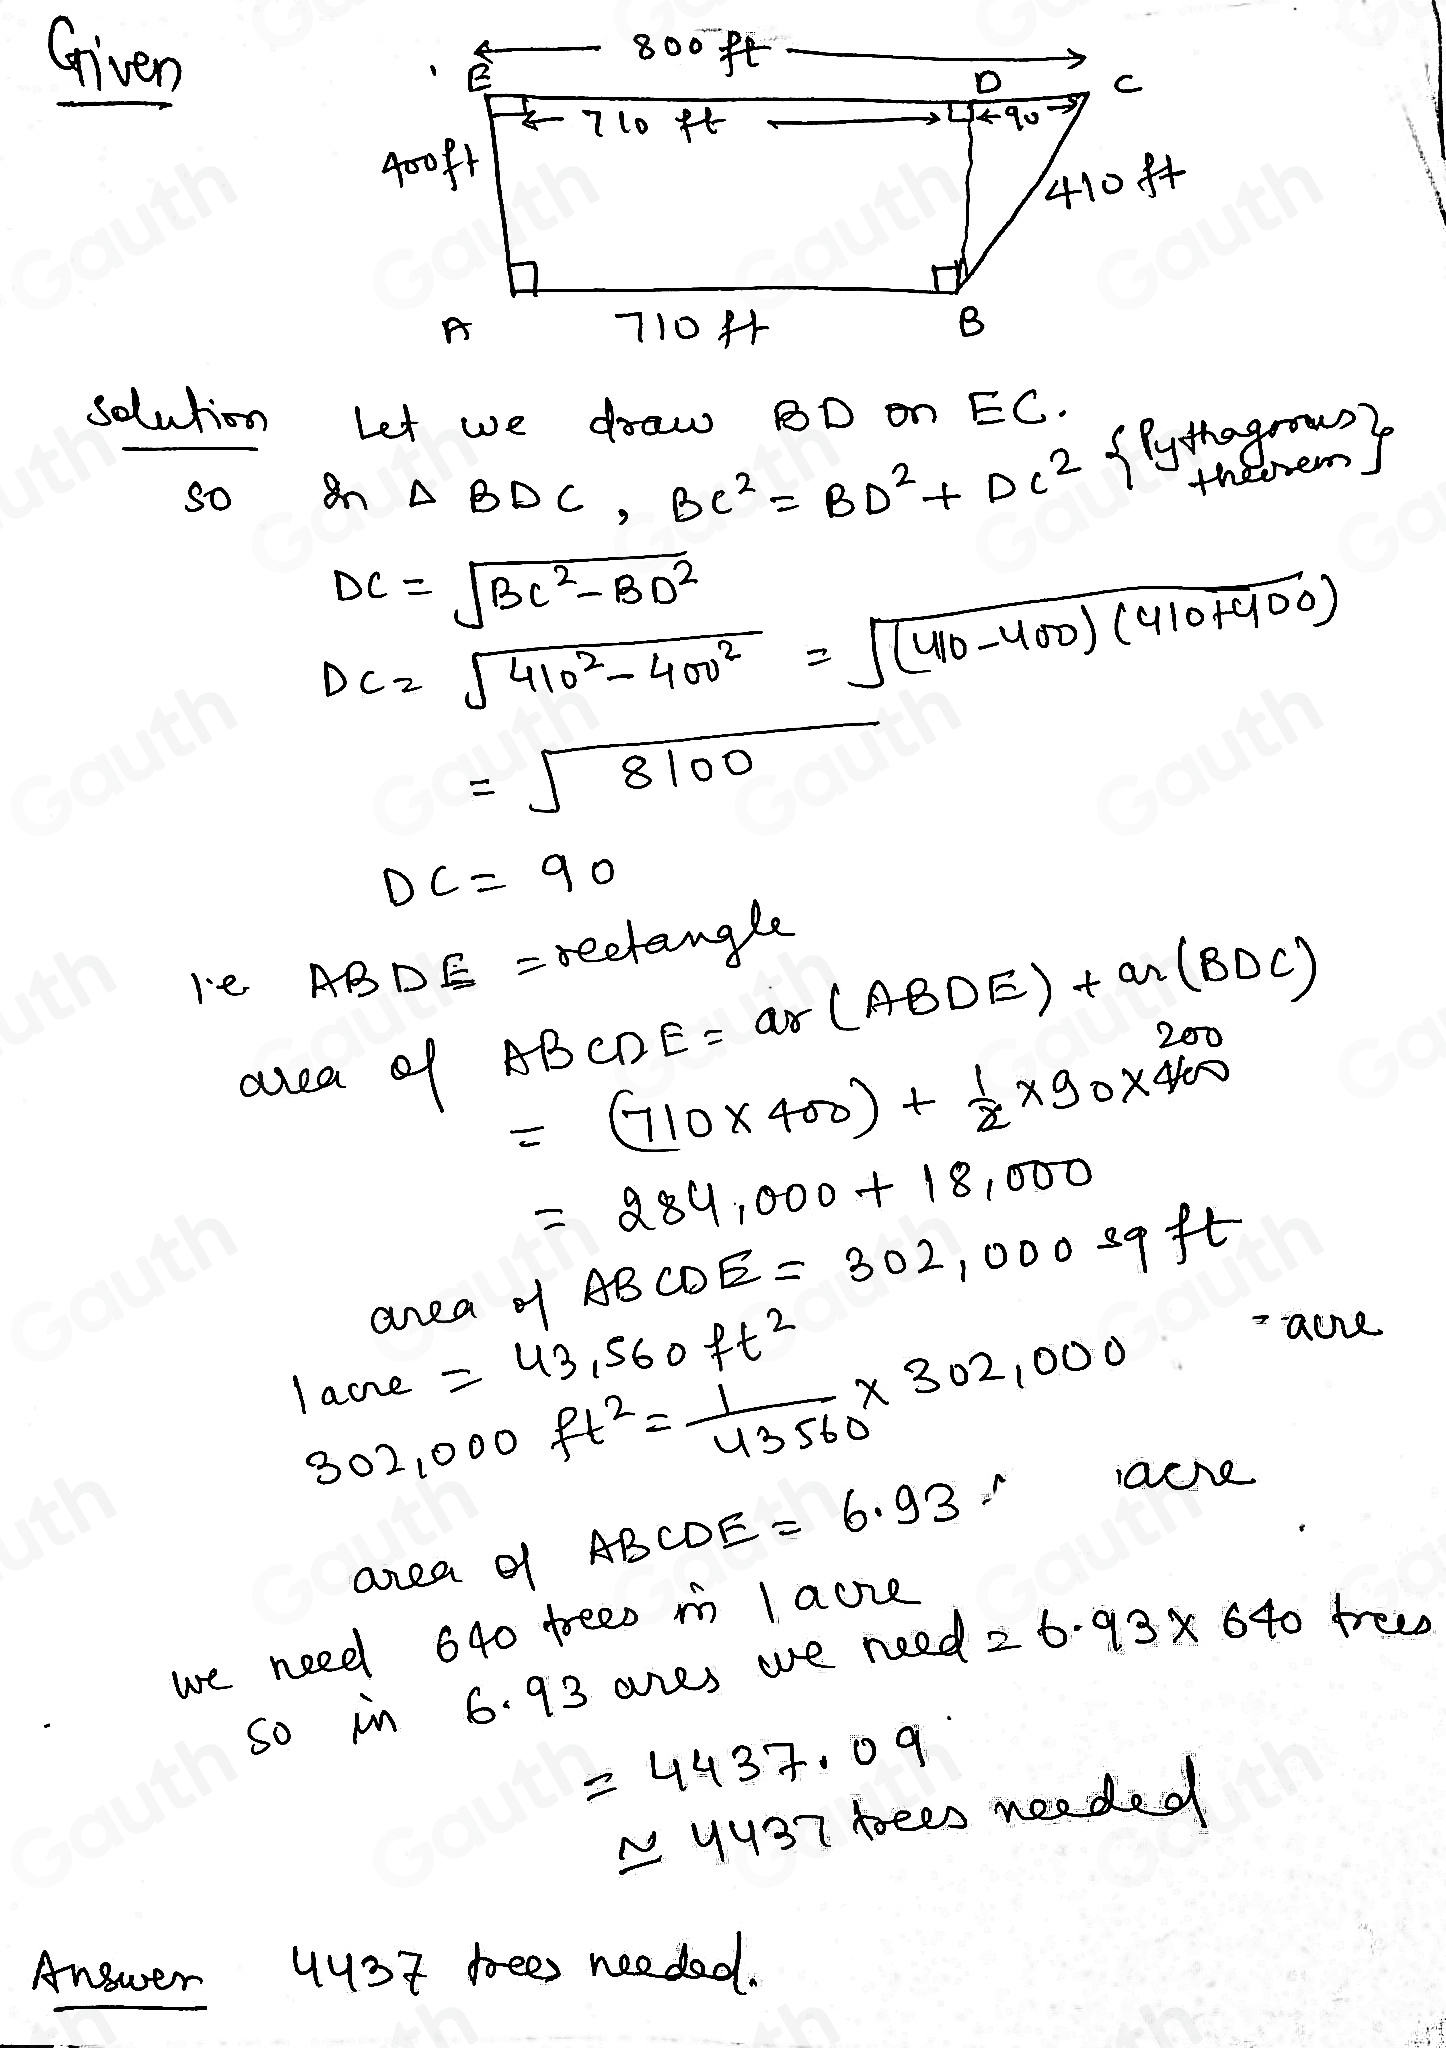 Given
800 ft
E D C
710 ft 90
400ft
410 ft
A 710 ft B
Solution Let we draw BD on EC.
so In Δ BDC, BC² = BD² + DC² {Pythagorous theorem}
DC = √BC² - BD²
DC = √410² - 400² = √(410-400)(410+400)
= √8100
DC = 90
i.e ABDE = rectangle
area of ABCDE = ar(ABDE) + ar(BDC)
= (710 x 400) + 1/2 x 90 x 400 200
= 284,000 + 18,000
area of ABCDE = 302,000 sq ft
1 acre = 43,560 ft²
302,000 ft² = 1/43560 x 302,000 - acre
area of ABCDE = 6.93 acre
we need 640 trees in 1 acre
so in 6.93 ares we need = 6.93 x 640 trees
= 4437.09
≃ 4437 trees needed
Answer 4437 trees needed.
Gauth